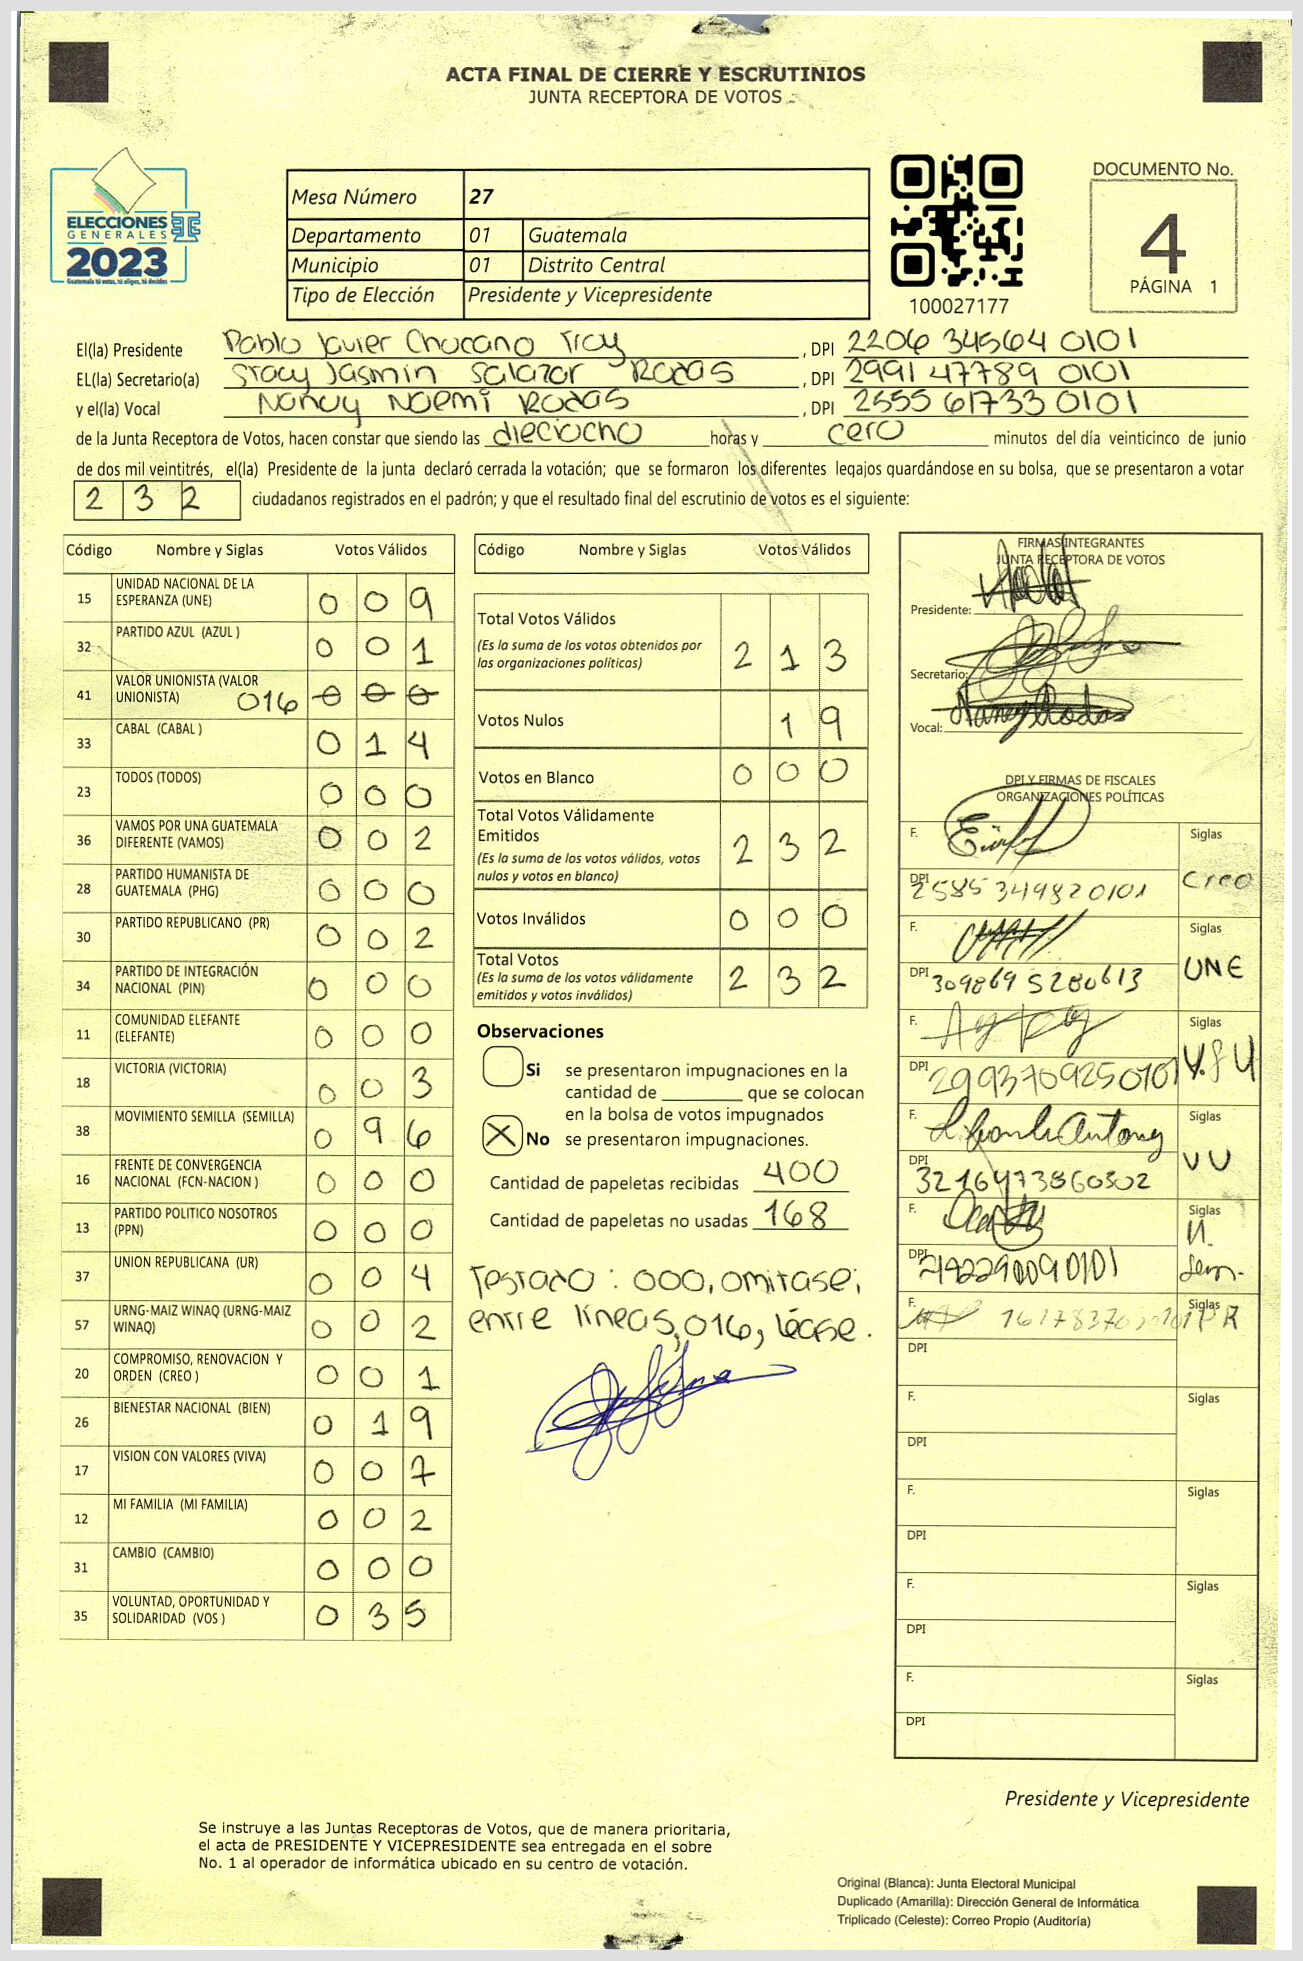 ACTA FINAL DE CIERRE Y ESCRUTINIOS
JUNTA RECEPTORA DE VOTOS
ELECCIONES
GENERALES
2023
Guatemala tú votas, tú eliges, tú decides
Mesa Número 27
Departamento 01 Guatemala
Municipio 01 Distrito Central
Tipo de Elección Presidente y Vicepresidente
100027177
DOCUMENTO No.
4
PÁGINA 1
El(la) Presidente Pablo Javier Chocano Troy, DPI 2206 34564 0101
EL(la) Secretario(a) Stacy Jasmin Salazar Rodas, DPI 2991 47789 0101
y el(la) Vocal Nancy Noemi Rodas, DPI 2555 61733 0101
de la Junta Receptora de Votos, hacen constar que siendo las dieciocho horas y cero minutos del día veinticinco de junio
de dos mil veintitrés, el(la) Presidente de la junta declaró cerrada la votación; que se formaron los diferentes legajos guardándose en su bolsa, que se presentaron a votar
232 ciudadanos registrados en el padrón; y que el resultado final del escrutinio de votos es el siguiente:
Código Nombre y Siglas Votos Válidos
15 UNIDAD NACIONAL DE LA ESPERANZA (UNE) 0 0 9
32 PARTIDO AZUL (AZUL ) 0 0 1
41 VALOR UNIONISTA (VALOR UNIONISTA) 016 0 0 0
33 CABAL (CABAL ) 0 1 4
23 TODOS (TODOS) 0 0 0
36 VAMOS POR UNA GUATEMALA DIFERENTE (VAMOS) 0 0 2
28 PARTIDO HUMANISTA DE GUATEMALA (PHG) 0 0 0
30 PARTIDO REPUBLICANO (PR) 0 0 2
34 PARTIDO DE INTEGRACIÓN NACIONAL (PIN) 0 0 0
11 COMUNIDAD ELEFANTE (ELEFANTE) 0 0 0
18 VICTORIA (VICTORIA) 0 0 3
38 MOVIMIENTO SEMILLA (SEMILLA) 0 9 6
16 FRENTE DE CONVERGENCIA NACIONAL (FCN-NACION ) 0 0 0
13 PARTIDO POLITICO NOSOTROS (PPN) 0 0 0
37 UNION REPUBLICANA (UR) 0 0 4
57 URNG-MAIZ WINAQ (URNG-MAIZ WINAQ) 0 0 2
20 COMPROMISO, RENOVACION Y ORDEN (CREO ) 0 0 1
26 BIENESTAR NACIONAL (BIEN) 0 1 9
17 VISION CON VALORES (VIVA) 0 0 7
12 MI FAMILIA (MI FAMILIA) 0 0 2
31 CAMBIO (CAMBIO) 0 0 0
35 VOLUNTAD, OPORTUNIDAD Y SOLIDARIDAD (VOS ) 0 3 5
Código Nombre y Siglas Votos Válidos
Total Votos Válidos 2 1 3
(Es la suma de los votos obtenidos por
las organizaciones políticas)
Votos Nulos 1 9
Votos en Blanco 0 0 0
Total Votos Válidamente
Emitidos 2 3 2
(Es la suma de los votos válidos, votos
nulos y votos en blanco)
Votos Inválidos 0 0 0
Total Votos 2 3 2
(Es la suma de los votos válidamente
emitidos y votos inválidos)
Observaciones
Si se presentaron impugnaciones en la
cantidad de que se colocan
en la bolsa de votos impugnados
X No se presentaron impugnaciones.
Cantidad de papeletas recibidas 400
Cantidad de papeletas no usadas 168
Testado: 000, omitase;
entre lineas, 016, léase.
FIRMAS INTEGRANTES
JUNTA RECEPTORA DE VOTOS
Presidente:
Secretario:
Vocal: Nancy Rodas
DPI Y FIRMAS DE FISCALES
ORGANIZACIONES POLÍTICAS
F. Siglas
DPI 2585349820101 Creo
F. Siglas
DPI 3098695280613 UNE
F. Siglas
DPI 2993709250101
F. Siglas
DPI 3216473860302 VU
F. Siglas
DPI
F. Siglas
DPI
F. Siglas
DPI
F. Siglas
DPI
F. Siglas
DPI
F. Siglas
DPI
Presidente y Vicepresidente
Se instruye a las Juntas Receptoras de Votos, que de manera prioritaria,
el acta de PRESIDENTE Y VICEPRESIDENTE sea entregada en el sobre
No. 1 al operador de informática ubicado en su centro de votación.
Original (Blanca): Junta Electoral Municipal
Duplicado (Amarilla): Dirección General de Informática
Triplicado (Celeste): Correo Propio (Auditoría)